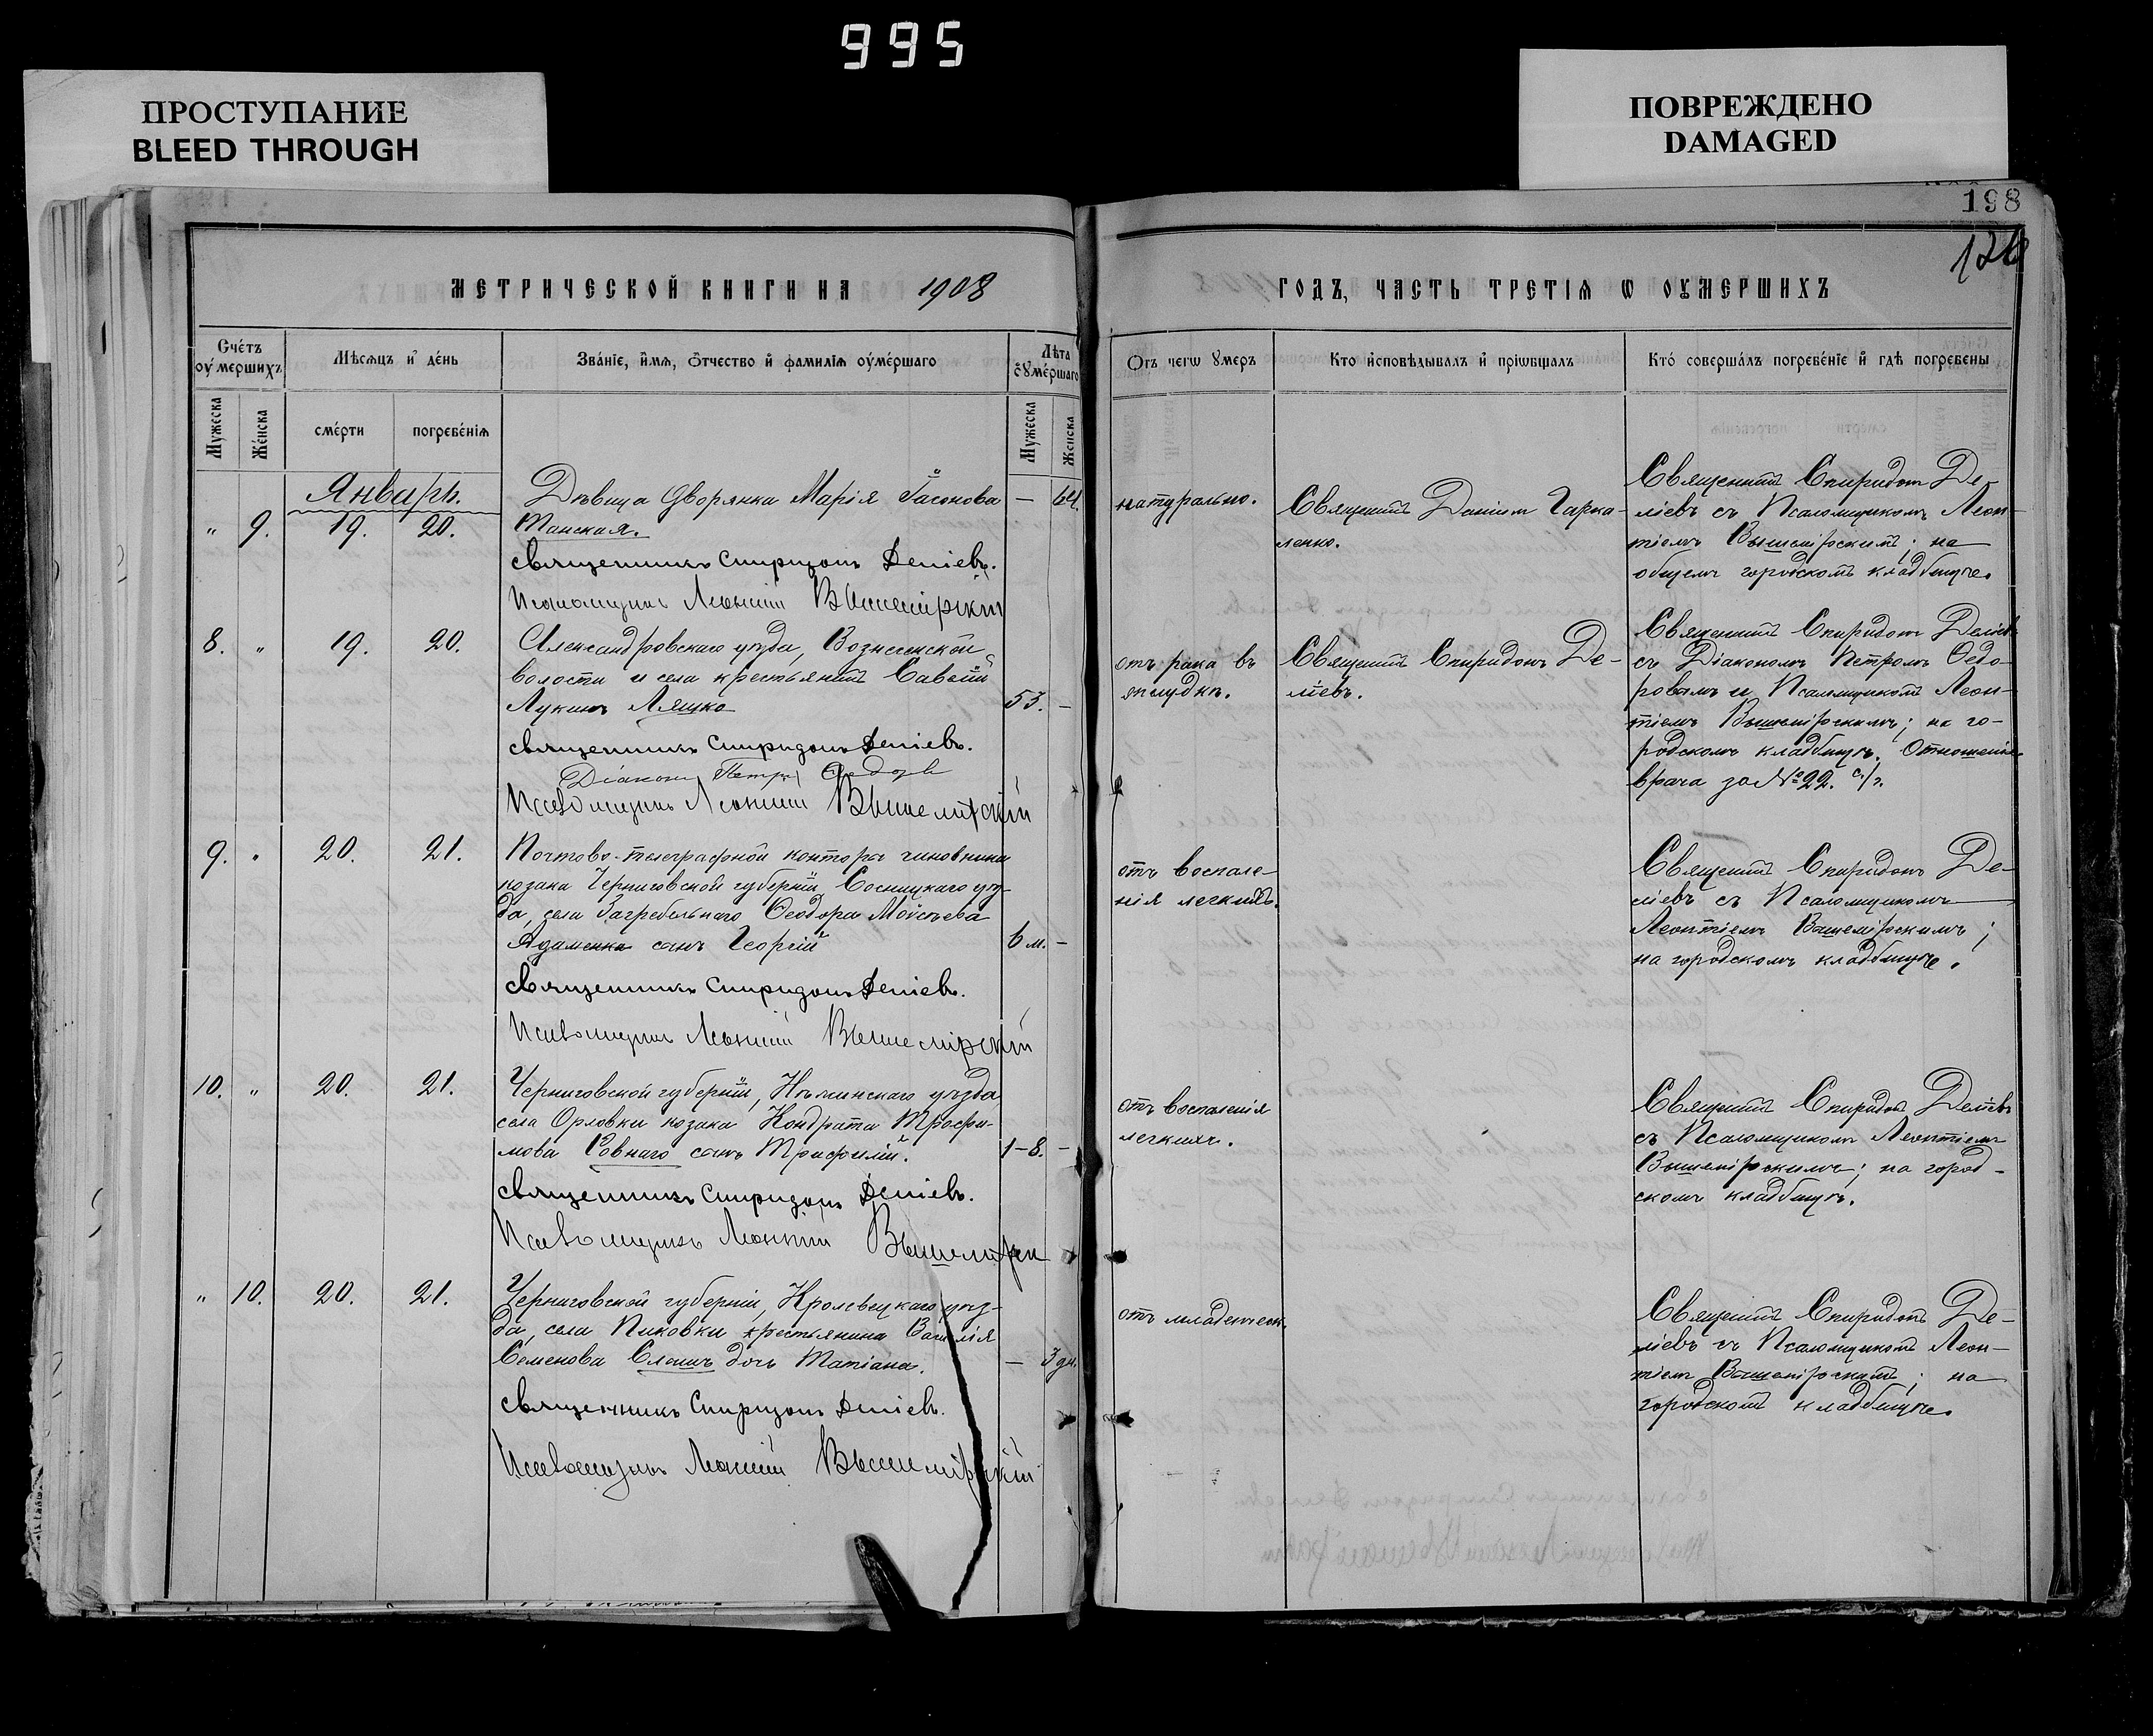 995
ПРОСТУПАНИЕ
BLEED THROUGH
ПОВРЕЖДЕНО
DAMAGED
198
126
МЕТРИЧЕСКОЙ КНИГИ НА 1908
ГОДЪ, ЧАСТЬ ТРЕТІЯ Ѡ ОУМЕРШИХЪ
Счéтъ оу́мершихъ
Мѣсѧцъ и де́нь
Зва́ніе, и́мѧ, ѻ́тчество и҆ фамилїѧ оуме́ршаго
Лѣта оуме́ршаго
Мужеска
Же́нска
сме́рти
погребе́нїѧ
Мужеска
Женска
Отъ чегѡ ᲂумеръ
Кто и҆сповѣ́дывалъ и҆ прїѡбща́лъ
Кто́ соверша́лъ погребе́нїе и҆ гдѣ̀ погребены
Январь.
" 9. 19. 20.
Дѣвица дворянка Марія Іасонова
Танская.
— 64.
Священникъ Спиридонъ Деліевъ.
Псаломщикъ Леонтій Вышемірскій
натурально.
Священникъ Даніилъ Гарка-
ленко.
Священникъ Спиридонъ Де-
ліевъ съ Псаломщикомъ Леон-
тіемъ Вышемірскимъ; на
общемъ городскомъ кладбищѣ.
8. " 19. 20.
Александровскаго уѣзда, Вознесенской
волости и села крестьянинъ Савелій
Лукинъ Ляшко
53. —
Священникъ Спиридонъ Деліевъ.
Діаконъ Петръ Ѳедоровъ
Псаломщикъ Леонтій Вышемірскій
отъ рака въ
желудкѣ.
Священникъ Спиридонъ Де-
ліевъ.
Священникъ Спиридонъ Деліевъ
съ Діакономъ Петромъ Ѳедо-
ровымъ и Псаломщикомъ Леон-
тіемъ Вышемірскимъ; на го-
родскомъ кладбищѣ. Отношеніе
врача за № 22. с/г.
9. " 20. 21.
Почтово-телеграфной конторы чиновника
козака Черниговской губерніи, Сосницкаго уѣз-
да, села Загребельнаго Ѳеодора Моисѣева
Адаменко сынъ Георгій
6 м. —
Священникъ Спиридонъ Деліевъ.
Псаломщикъ Леонтій Вышемірскій
отъ воспале-
нія легкихъ.
Священникъ Спиридонъ Де-
ліевъ съ Псаломщикомъ
Леонтіемъ Вышемірскимъ;
на городскомъ кладбищѣ.
10. " 20. 21.
Черниговской губерніи, Нѣжинскаго уѣзда
села Орловки козака Кондрата Трофи-
мова Ровнаго сынъ Трифилій.
1-8. —
Священникъ Спиридонъ Деліевъ.
Псаломщикъ Леонтій Вышемірскій
отъ воспаленія
легкихъ.
Священникъ Спиридонъ Деліевъ
съ Псаломщикомъ Леонтіемъ
Вышемірскимъ; на город-
скомъ кладбищѣ.
" 10. 20. 21.
Черниговской губерніи, Кролевецкаго уѣз-
да, села Пиковки крестьянина Василія
Семенова Слышъ дочь Татіана.
— 3 дн.
Священникъ Спиридонъ Деліевъ.
Псаломщикъ Леонтій Вышемірскій
отъ младенческ.
Священникъ Спиридонъ Де-
ліевъ съ Псаломщикомъ Леон-
тіемъ Вышемірскимъ; на
городскомъ кладбищѣ.